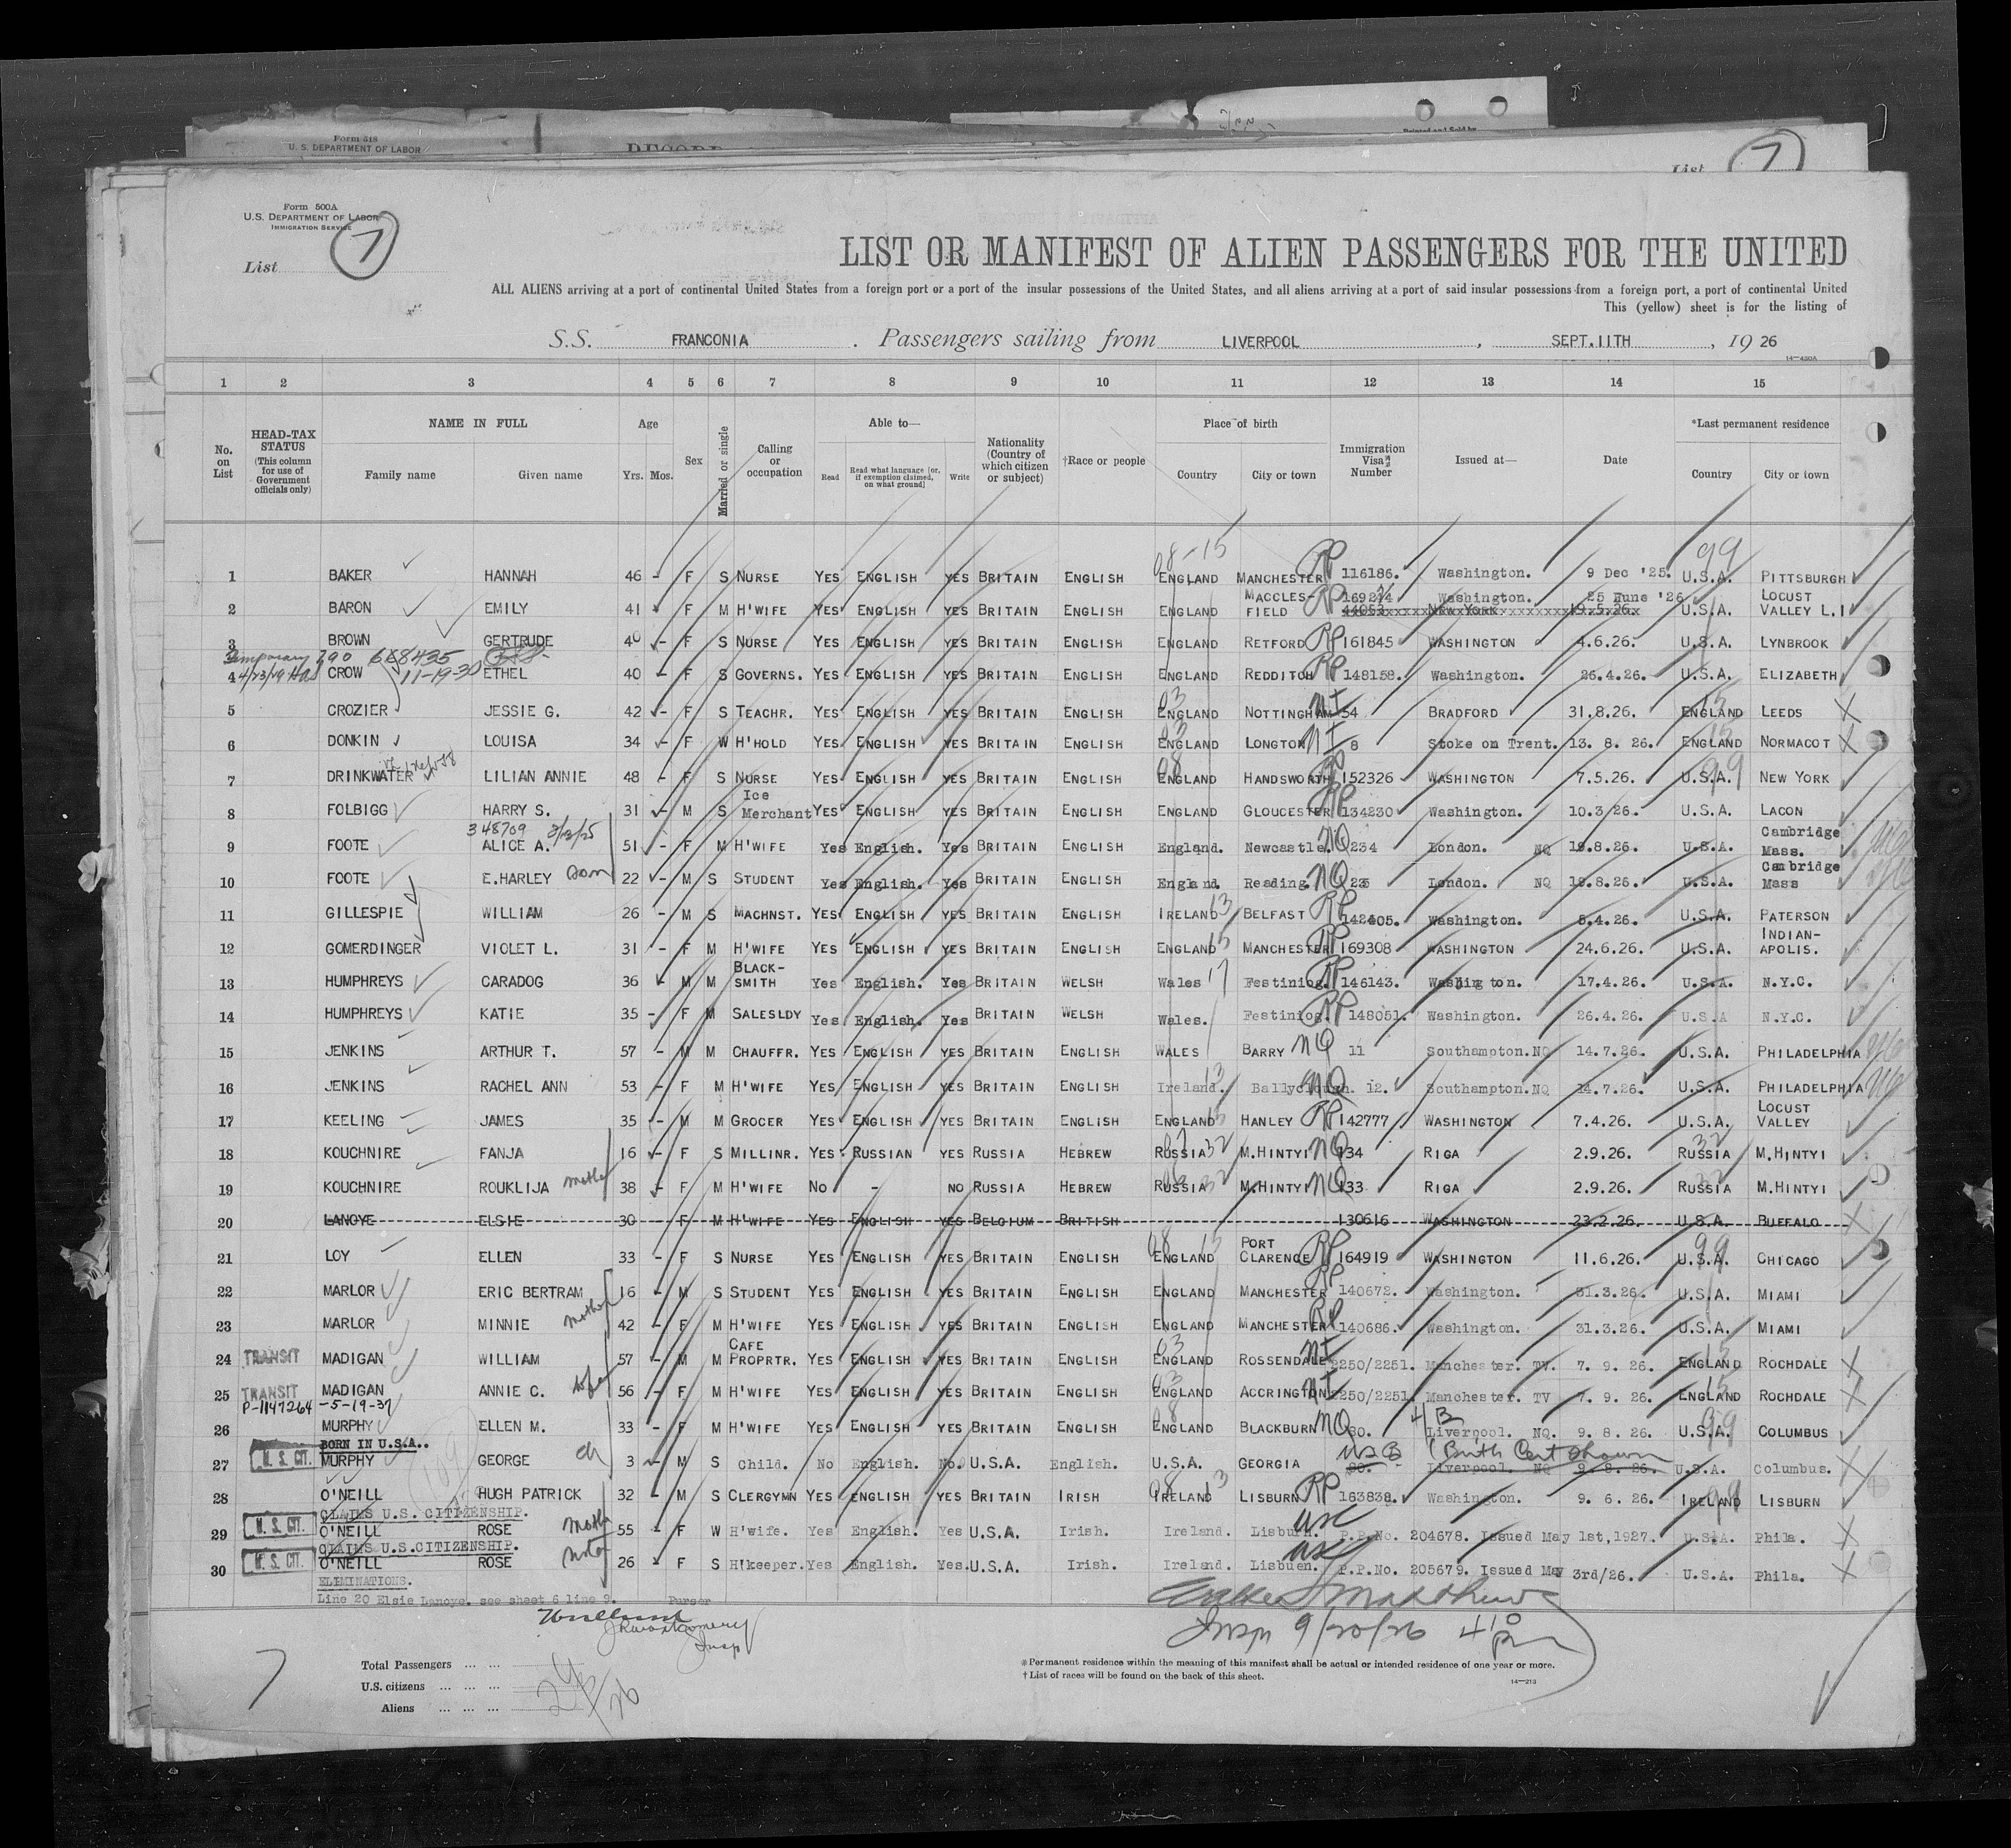 Form 518
U. S. DEPARTMENT OF LABOR
RECORD
Printed and Sold by
List 7
Form 500A
U.S. DEPARTMENT OF LABOR
IMMIGRATION SERVICE
List 7
LIST OR MANIFEST OF ALIEN PASSENGERS FOR THE UNITED
ALL ALIENS arriving at a port of continental United States from a foreign port or a port of the insular possessions of the United States, and all aliens arriving at a port of said insular possessions from a foreign port, a port of continental United
This (yellow) sheet is for the listing of
S.S. FRANCONIA. Passengers sailing from LIVERPOOL, SEPT.11TH, 19 26
14—430A
1 2 3 4 5 6 7 8 9 10 11 12 13 14 15
No. on List
HEAD-TAX STATUS (This column for use of Government officials only)
NAME IN FULL Family name Given name
Age Yrs. Mos.
Sex
Married or single
Calling or occupation
Able to— Read Read what language [or, if exemption claimed, on what ground] Write
Nationality (Country of which citizen or subject)
†Race or people
Place of birth Country City or town
Immigration Visa Number
Issued at—
Date
*Last permanent residence Country City or town
08-15 99
1 BAKER HANNAH 46 - F S NURSE YES ENGLISH YES BRITAIN ENGLISH ENGLAND MANCHESTER RP 116186. Washington. 9 Dec '25. U.S.A. PITTSBURGH
2 BARON EMILY 41 F M H'WIFE YES ENGLISH YES BRITAIN ENGLISH ENGLAND MACCLES-FIELD RP 169274 25 June '26 U.S.A. LOCUST VALLEY L.I
44053 NEW YORK 19.5.26.
3 BROWN GERTRUDE 40 - F S NURSE YES ENGLISH YES BRITAIN ENGLISH ENGLAND RETFORD RP 161845 WASHINGTON 4.6.26. U.S.A. LYNBROOK
Temporary 290 668435
11-19-30
4 CROW ETHEL 40 - F S GOVERNS. YES ENGLISH YES BRITAIN ENGLISH ENGLAND REDDITCH RP 148158. Washington. 26.4.26. U.S.A. ELIZABETH
5 CROZIER JESSIE G. 42 - F S TEACHR. YES ENGLISH YES BRITAIN ENGLISH ENGLAND NOTTINGHAM NI 54 BRADFORD 31.8.26. ENGLAND LEEDS
6 DONKIN LOUISA 34 - F W H'HOLD YES ENGLISH YES BRITAIN ENGLISH ENGLAND LONGTON NI 8 Stoke on Trent. 13. 8. 26. ENGLAND NORMACOT
7 DRINKWATER LILIAN ANNIE 48 - F S NURSE YES ENGLISH YES BRITAIN ENGLISH ENGLAND HANDSWORTH RP 152326 WASHINGTON 7.5.26. U.S.A. NEW YORK
8 FOLBIGG HARRY S. 31 - M S Ice Merchant YES ENGLISH YES BRITAIN ENGLISH ENGLAND GLOUCESTER RP 134230 Washington. 10.3.26. U.S.A. LACON
348709
9 FOOTE ALICE A. 51 - F M H'WIFE Yes English. Yes BRITAIN ENGLISH England. Newcastle. NQ 234 London. NQ 19.8.26. U.S.A. Cambridge Mass.
10 FOOTE E.HARLEY son 22 - M S STUDENT Yes English. Yes BRITAIN ENGLISH England. Reading. NQ 235 London. NQ 19.8.26. U.S.A. Cambridge Mass
11 GILLESPIE WILLIAM 26 - M S MACHNST. YES ENGLISH YES BRITAIN ENGLISH IRELAND BELFAST RP 142405. Washington. 5.4.26. U.S.A. PATERSON
12 GOMERDINGER VIOLET L. 31 - F M H'WIFE YES ENGLISH YES BRITAIN ENGLISH ENGLAND MANCHESTER RP 169308 WASHINGTON 24.6.26. U.S.A. INDIAN-APOLIS.
13 HUMPHREYS CARADOG 36 - M M BLACK-SMITH Yes English. Yes BRITAIN WELSH Wales Festiniog. RP 146143. Washington. 17.4.26. U.S.A. N.Y.C.
14 HUMPHREYS KATIE 35 - F M SALESLDY Yes English. Yes BRITAIN WELSH Wales. Festiniog. RP 148051. Washington. 26.4.26. U.S.A N.Y.C.
15 JENKINS ARTHUR T. 57 - M M CHAUFFR. YES ENGLISH YES BRITAIN ENGLISH WALES BARRY NQ 11 Southampton.NQ 14.7.26. U.S.A. PHILADELPHIA
16 JENKINS RACHEL ANN 53 - F M H'WIFE YES ENGLISH YES BRITAIN ENGLISH Ireland. Ballyclough. NQ 12. Southampton.NQ 14.7.26. U.S.A. PHILADELPHIA
17 KEELING JAMES 35 - M M GROCER YES ENGLISH YES BRITAIN ENGLISH ENGLAND HANLEY RP 142777 WASHINGTON 7.4.26. U.S.A. LOCUST VALLEY
18 KOUCHNIRE FANJA 16 - F S MILLINR. YES RUSSIAN YES RUSSIA HEBREW RUSSIA 32 M.HINTYI NQ 134 RIGA 2.9.26. RUSSIA M.HINTYI
19 KOUCHNIRE ROUKLIJA mother 38 - F M H'WIFE NO - NO RUSSIA HEBREW RUSSIA 32 M.HINTYI NQ 133 RIGA 2.9.26. RUSSIA M.HINTYI
20 LANOYE ELSIE 30 F M H'WIFE YES ENGLISH YES BELGIUM BRITISH 130616 WASHINGTON 23.2.26. U.S.A. BUFFALO
21 LOY ELLEN 33 - F S NURSE YES ENGLISH YES BRITAIN ENGLISH ENGLAND PORT CLARENCE RP 164919 WASHINGTON 11.6.26. U.S.A. CHICAGO
22 MARLOR ERIC BERTRAM 16 - M S STUDENT YES ENGLISH YES BRITAIN ENGLISH ENGLAND MANCHESTER RP 140672. Washington. 31.3.26. U.S.A. MIAMI
23 MARLOR MINNIE mother 42 - F M H'WIFE YES ENGLISH YES BRITAIN ENGLISH ENGLAND MANCHESTER RP 140686. Washington. 31.3.26. U.S.A. MIAMI
24 TRANSIT MADIGAN WILLIAM 57 - M M CAFE PROPRTR. YES ENGLISH YES BRITAIN ENGLISH ENGLAND ROSSENDALE NI 2250/2251. Manchester. TV. 7. 9. 26. ENGLAND ROCHDALE
25 TRANSIT MADIGAN ANNIE C. wife 56 - F M H'WIFE YES ENGLISH YES BRITAIN ENGLISH ENGLAND ACCRINGTON NI 2250/2251 Manchester. TV 7. 9. 26. ENGLAND ROCHDALE
P-1147264 -5-19-37
26 MURPHY ELLEN M. 33 - F M H'WIFE YES ENGLISH YES BRITAIN ENGLISH ENGLAND BLACKBURN NQ 30. Liverpool. NQ. 9. 8. 26. U.S.A. COLUMBUS
BORN IN U.S.A.. USB Birth Cert shown
27 U. S. CIT. MURPHY GEORGE ch 3 - M S Child. No English. No. U.S.A. English. U.S.A. GEORGIA 30. Liverpool. NQ 9. 8. 26. U.S.A. Columbus.
28 O'NEILL HUGH PATRICK 32 - M S CLERGYMN YES ENGLISH YES BRITAIN IRISH IRELAND LISBURN RP 163838. Washington. 9. 6. 26. IRELAND LISBURN
CLAIMS U.S. CITIZENSHIP.
29 U. S. CIT. O'NEILL ROSE mother 55 - F W H'wife. Yes English. Yes U.S.A. Irish. Ireland. Lisburn. USC P.P.No. 204678. Issued May 1st,1927. U.S.A. Phila.
CLAIMS U.S.CITIZENSHIP.
30 U. S. CIT. O'NEILL ROSE 26 - F S H'keeper. Yes English. Yes. U.S.A. Irish. Ireland. Lisbuen. USC P.P.No. 205679. Issued May 3rd/26. U.S.A. Phila.
ELIMINATIONS.
Line 20 Elsie Lanoye. see sheet 6 line 9. Purser
Insp 9/20/26 4 10 pm
Insp
7
Total Passengers
U.S. citizens
Aliens
*Permanent residence within the meaning of this manifest shall be actual or intended residence of one year or more.
†List of races will be found on the back of this sheet.
14—213